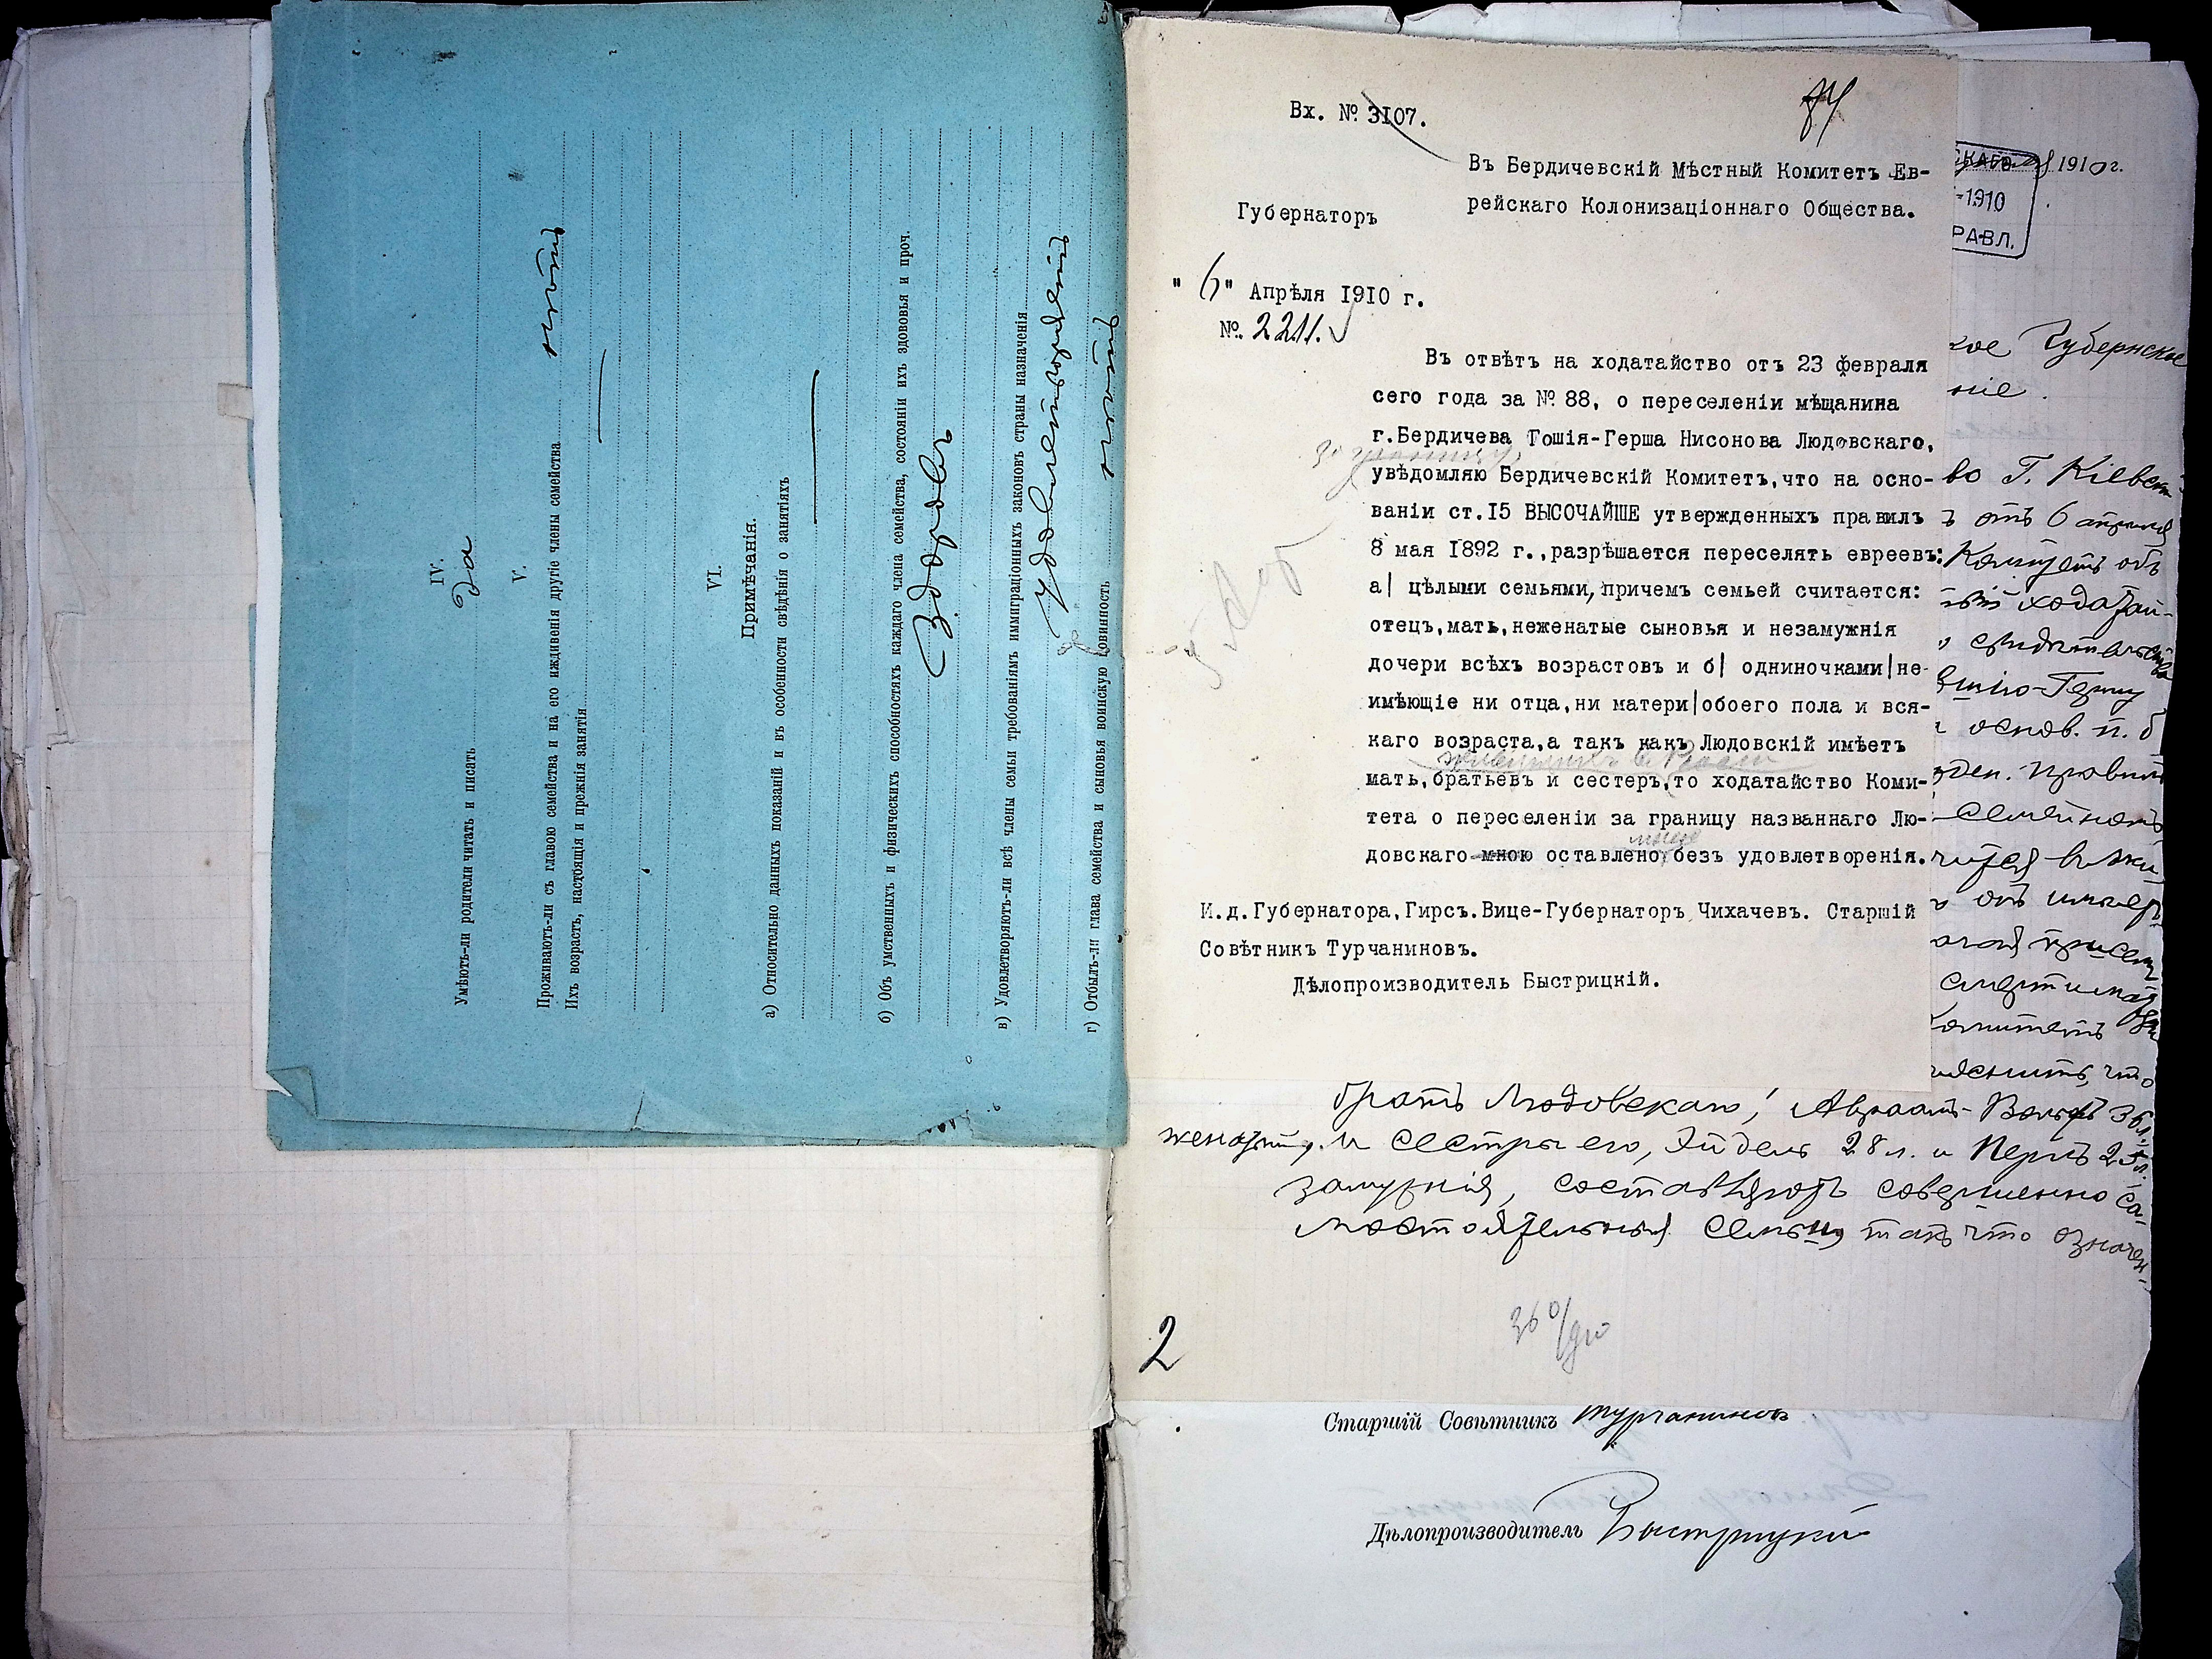 IV.
Умѣютъ-ли родители читать и писать да
V.
Проживаютъ-ли съ главою семейства и на его иждивенiи другiе члены семейства нѣтъ
Ихъ возрастъ, настоящiя и прежнiя занятiя
VI.
Примѣчанiя.
а) Относительно данныхъ показанiй и въ особенности свѣдѣнiя о занятiяхъ
б) Объ умственныхъ и физическихъ способностяхъ каждаго члена семейства, состоянiи ихъ здововья и проч.
Здоровы
в) Удовлетворяютъ-ли всѣ члены семьи требованiямъ иммиграцiонныхъ законовъ страны назначенiя
Удовлетворяютъ
г) Отбылъ-ли глава семейства и сыновья воинскую повинность
Вх. № 3107.
Въ Бердичевскiй Мѣстный Комитетъ Ев-
рейскаго Колонизацiоннаго Общества.
Губернаторъ
"6" Апрѣля 1910 г.
№ 2211.
Въ отвѣтъ на ходатайство отъ 23 февраля
сего года за № 88, о переселенiи мѣщанина
г.Бердичева Гошiя-Герша Нисонова Людовскаго,
за границу,
увѣдомляю Бердичевскiй Комитетъ,что на осно-
ванiи ст.15 ВЫСОЧАЙШЕ утвержденныхъ правилъ
8 мая 1892 г.,разрѣшается переселять евреевъ:
а| цѣлыми семьями,причемъ семьей считается:
отецъ,мать,неженатые сыновья и незамужнiя
дочери всѣхъ возрастовъ и б| одниночками|не-
имѣющiе ни отца,ни матери|обоего пола и вся-
каго возраста,а такъ какъ Людовскiй имѣетъ
мать,братьевъ и сестеръ,то ходатайство Коми-
тета о переселенiи за границу названнаго Лю-
мною
довскаго мною оставлено безъ удовлетворенiя.
И.д.Губернатора,Гирсъ.Вице-Губернаторъ Чихачевъ. Старшiй
Совѣтникъ Турчаниновъ.
Дѣлопроизводитель Быстрицкiй.
СКАГО 1910 г.
-1910
РАВЛ.
кое Губернское
нiе.
во Г. Кiевск
ъ отъ 6 апрѣля
Комитетъ объ
ходатай-
свидѣтельства
основ. п. б
ден. правилъ
Комитетъ
братъ Людовскаго, Авраамъ-Вольфъ 36 л.
женатый, и сестры его, Эйдель 28 л. и Перль 25 л.
замужнiя, составляютъ совершенно са-
мостоятельныя семьи, такъ что означен-
2
Старшiй Совѣтникъ Турчаниновъ
Дѣлопроизводитель Быстрицкiй